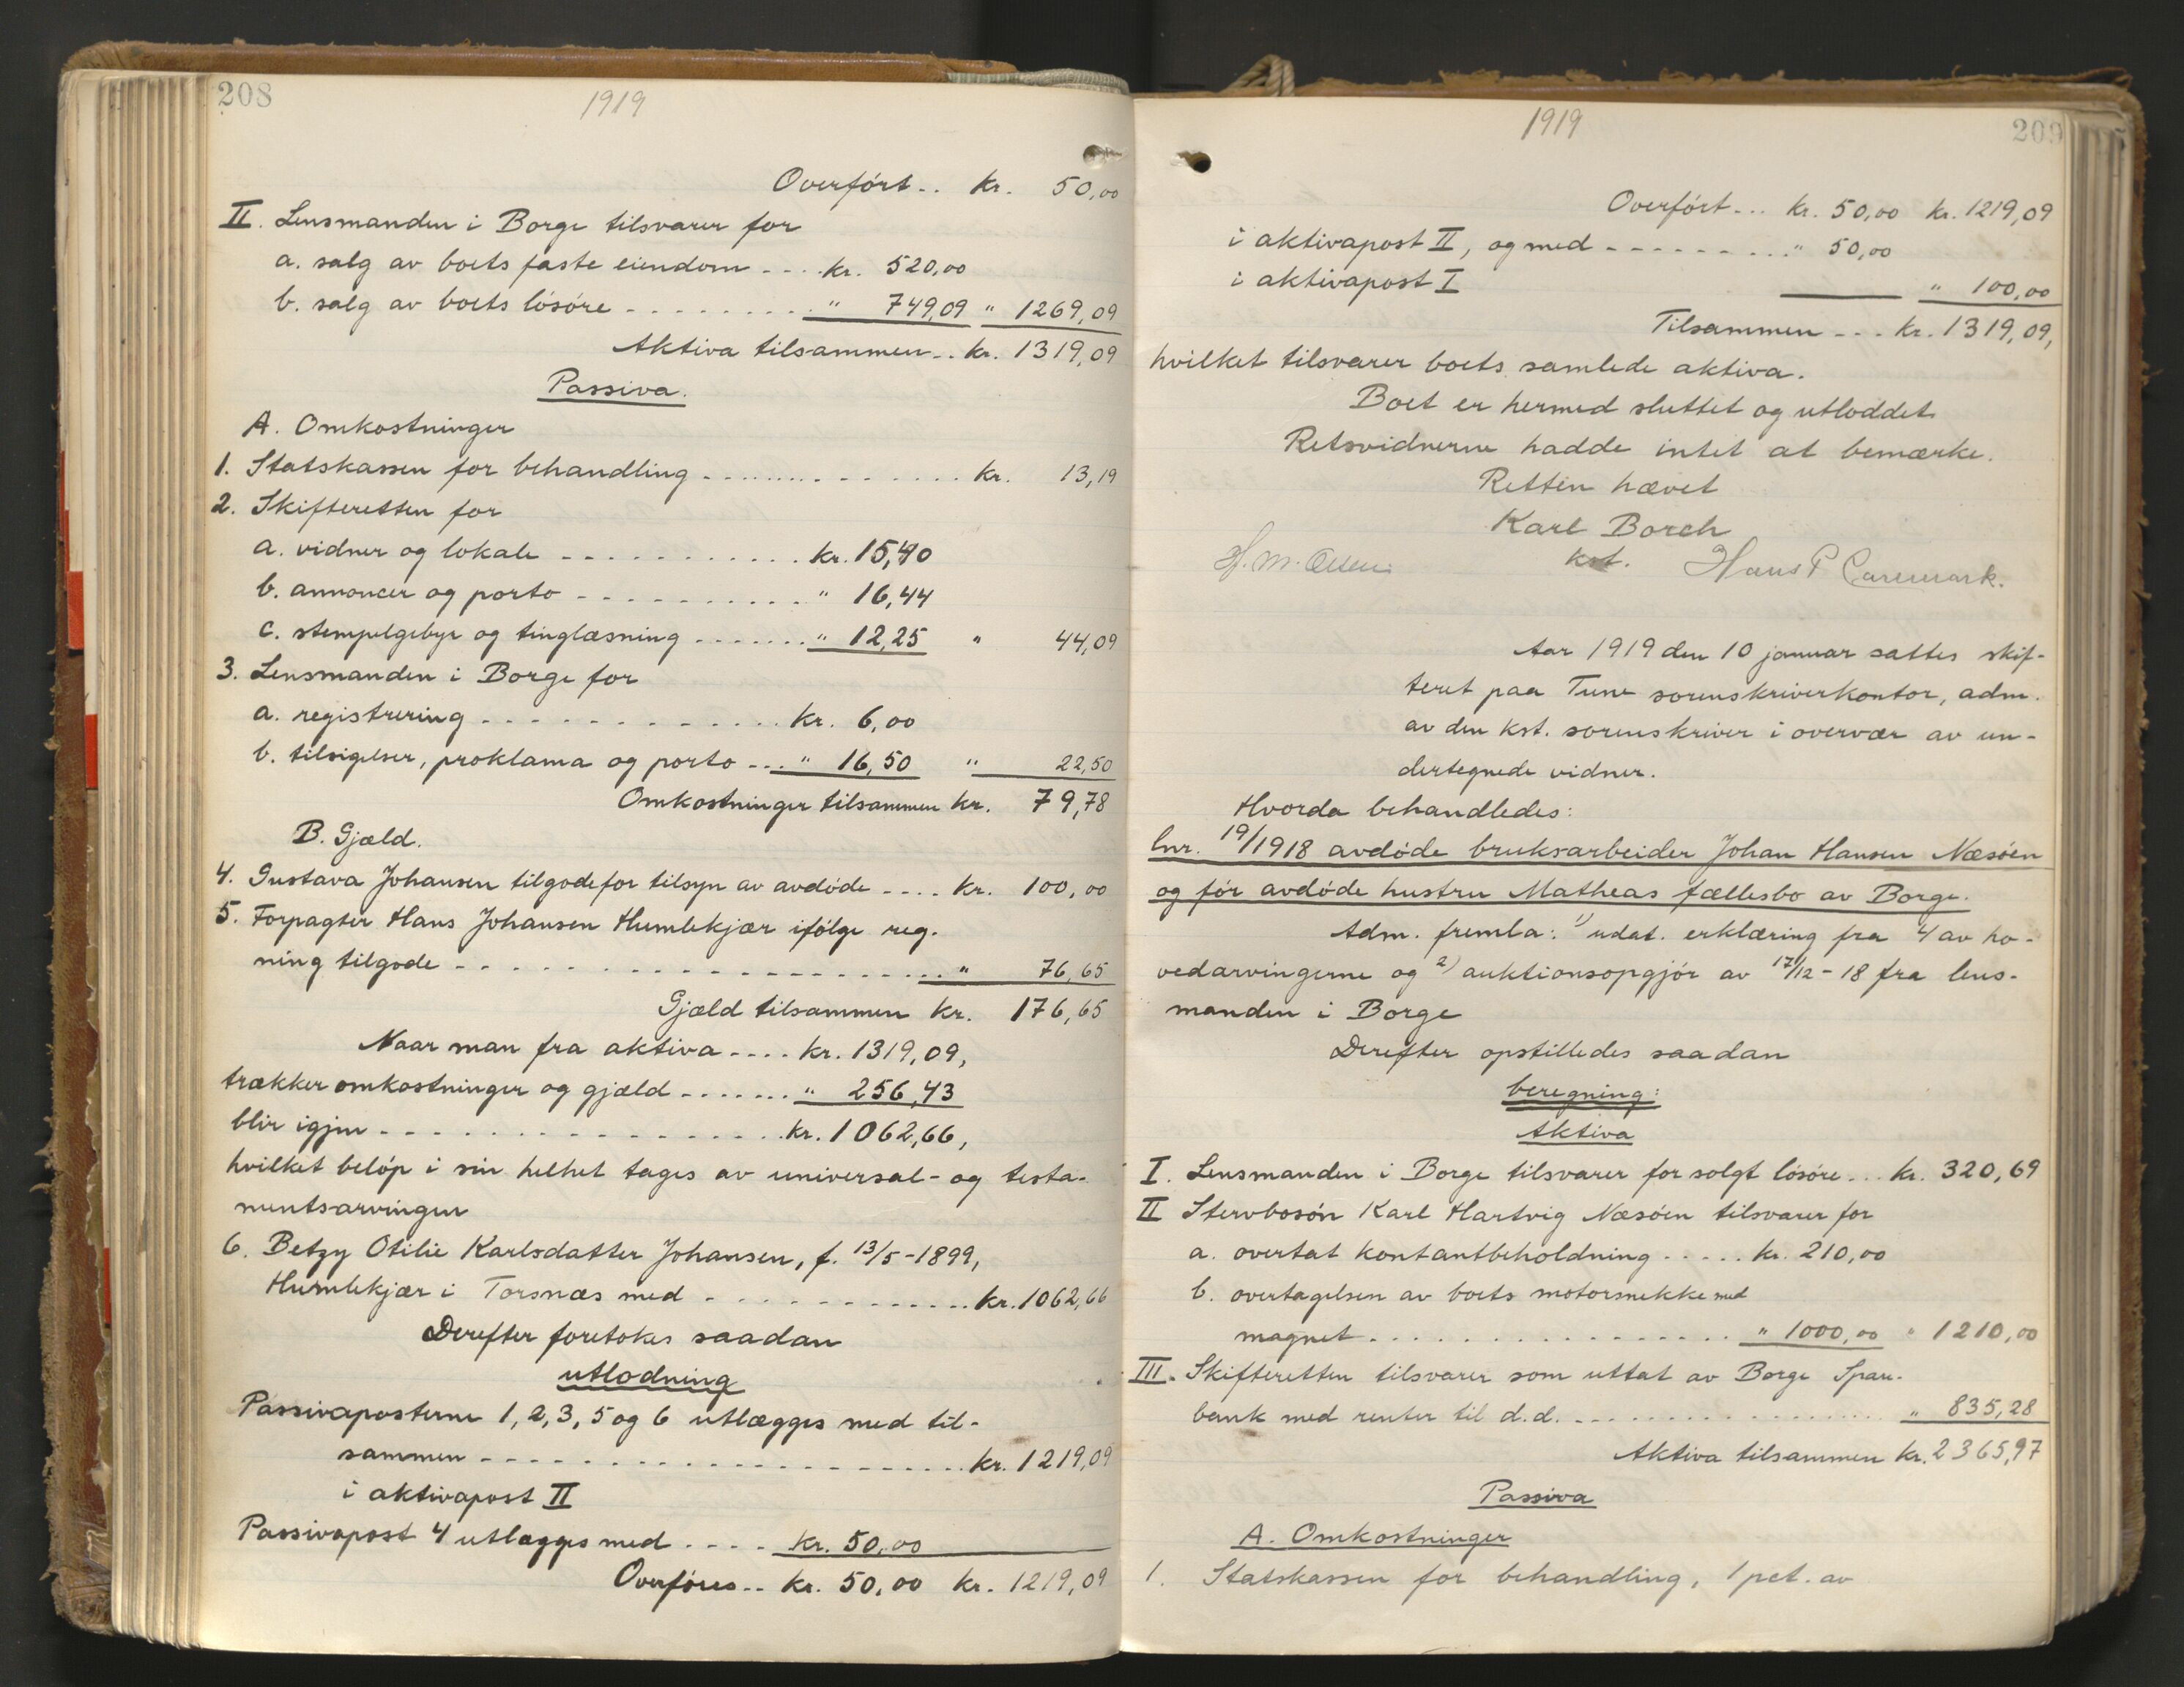 208
1919
Overført.. kr. 50,00
II. Lensmanden i Borge tilsvarer for
a. salg av boets faste eiendom .... kr. 520,00
b. salg av boets løsøre ......... " 749,09 " 1269,09
Aktiva tilsammen.. kr. 1319,09
Passiva.
A. Omkostninger
1. Statskassen for behandling ............... kr. 13,19
2. Skifteretten for
a. vidner og lokale ........... kr. 15,40
b. annoncer og porto .......... " 16,44
c. stempelgebyr og tinglæsning ....... " 12,25 " 44,09
3. Lensmanden i Borge for
a. registrering ............. kr. 6,00
b. tilsigelser, proklama og porto ... " 16,50 " 22,50
Omkostninger tilsammen kr. 79,78
B. Gjæld.
4. Gustava Johansen tilgode for tilsyn av avdøde .... kr. 100,00
5. Forpagter Hans Johansen Humlekjær ifølge reg-
ning tilgode ...................... " 76,65
Gjæld tilsammen kr. 176,65
Naar man fra aktiva .... kr. 1319,09,
trækker omkostninger og gjæld ....... " 256,43
blir igjen ................. kr. 1062,66,
hvilket beløp i sin helhet tages av universal- og testa-
mentsarvingen
6. Betzy Otilie Karlsdatter Johansen, f. 13/5-1899,
Humlekjær i Torsnæs med ............ kr. 1062,66
Derefter foretokes saadan
utlodning
Passivaposterne 1, 2, 3, 5 og 6 utlægges med til-
sammen ...................... kr. 1219,09
i aktivapost II
Passivapost 4 utlægges med .... kr. 50,00
Overføres.. kr. 50,00 kr. 1219,09
1919
209
Overført... kr. 50,00 kr. 1219,09
i aktivapost II, og med ......... " 50,00
i aktivapost I " 100,00
Tilsammen ... kr. 1319,09,
hvilket tilsvarer boets samlede aktiva.
Boet er hermed sluttet og utloddet.
Retsvidnerne hadde intet at bemærke.
Retten hævet
Karl Borch
H. M. Olsen kst. Hans P
Aar 1919 den 10 januar sattes skif-
teret paa Tune sorenskriverkontor, adm.
av den kst. sorenskriver i overvær av un-
dertegnede vidner.
Hvorda behandledes:
lnr. 19/1918 avdøde bruksarbeider Johan Hansen Næsøen
og før avdøde hustru Matheas fællesbo av Borge.
Adm. fremla: 1) udat. erklæring fra 4 av ho-
vedarvingerne og 2) auktionsopgjør av 17/12-18 fra lens-
manden i Borge
Derefter opstilledes saadan
beregning:
Aktiva
I. Lensmanden i Borge tilsvarer for solgt løsøre ... kr. 320,69
II Stervbosøn Karl Hartvig Næsøen tilsvarer for
a. overtat kontantbeholdning ..... kr. 210,00
b. overtagelsen av boets motorsnekke med
magnet ................ " 1000,00 " 1210,00
III. Skifteretten tilsvarer som uttat av Borge Spare-
bank med renter til d.d. .................. " 835,28
Aktiva tilsammen kr. 2365,97
Passiva
A. Omkostninger
1. Statskassen for behandling, 1 pct. av